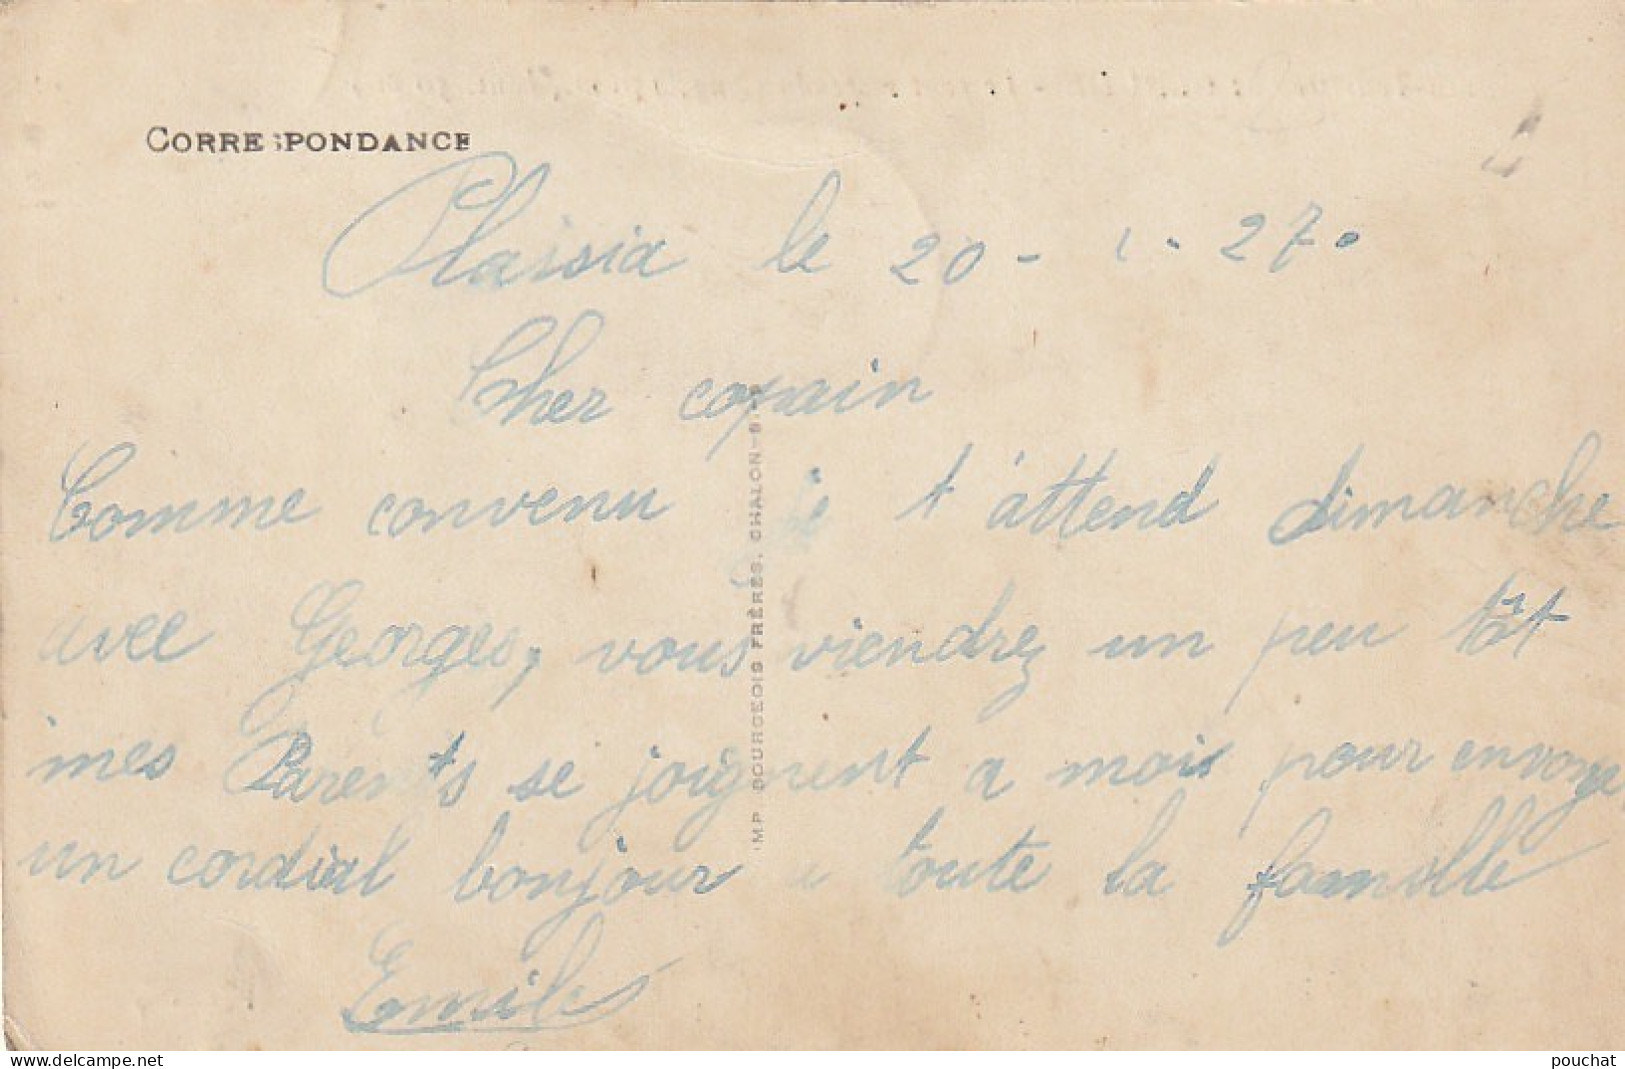 CORRESPONDANCE
Plaisia le 20 - 1 - 27.
Cher copain
Comme convenu je t'attend dimanche
avec Georges, vous viendrez un peu tôt
mes Parents se joignent a moi pour envoye
un cordial bonjour a toute la famille
Emile
IMP. BOURGEOIS FRÈRES, CHALON-S
pouchat